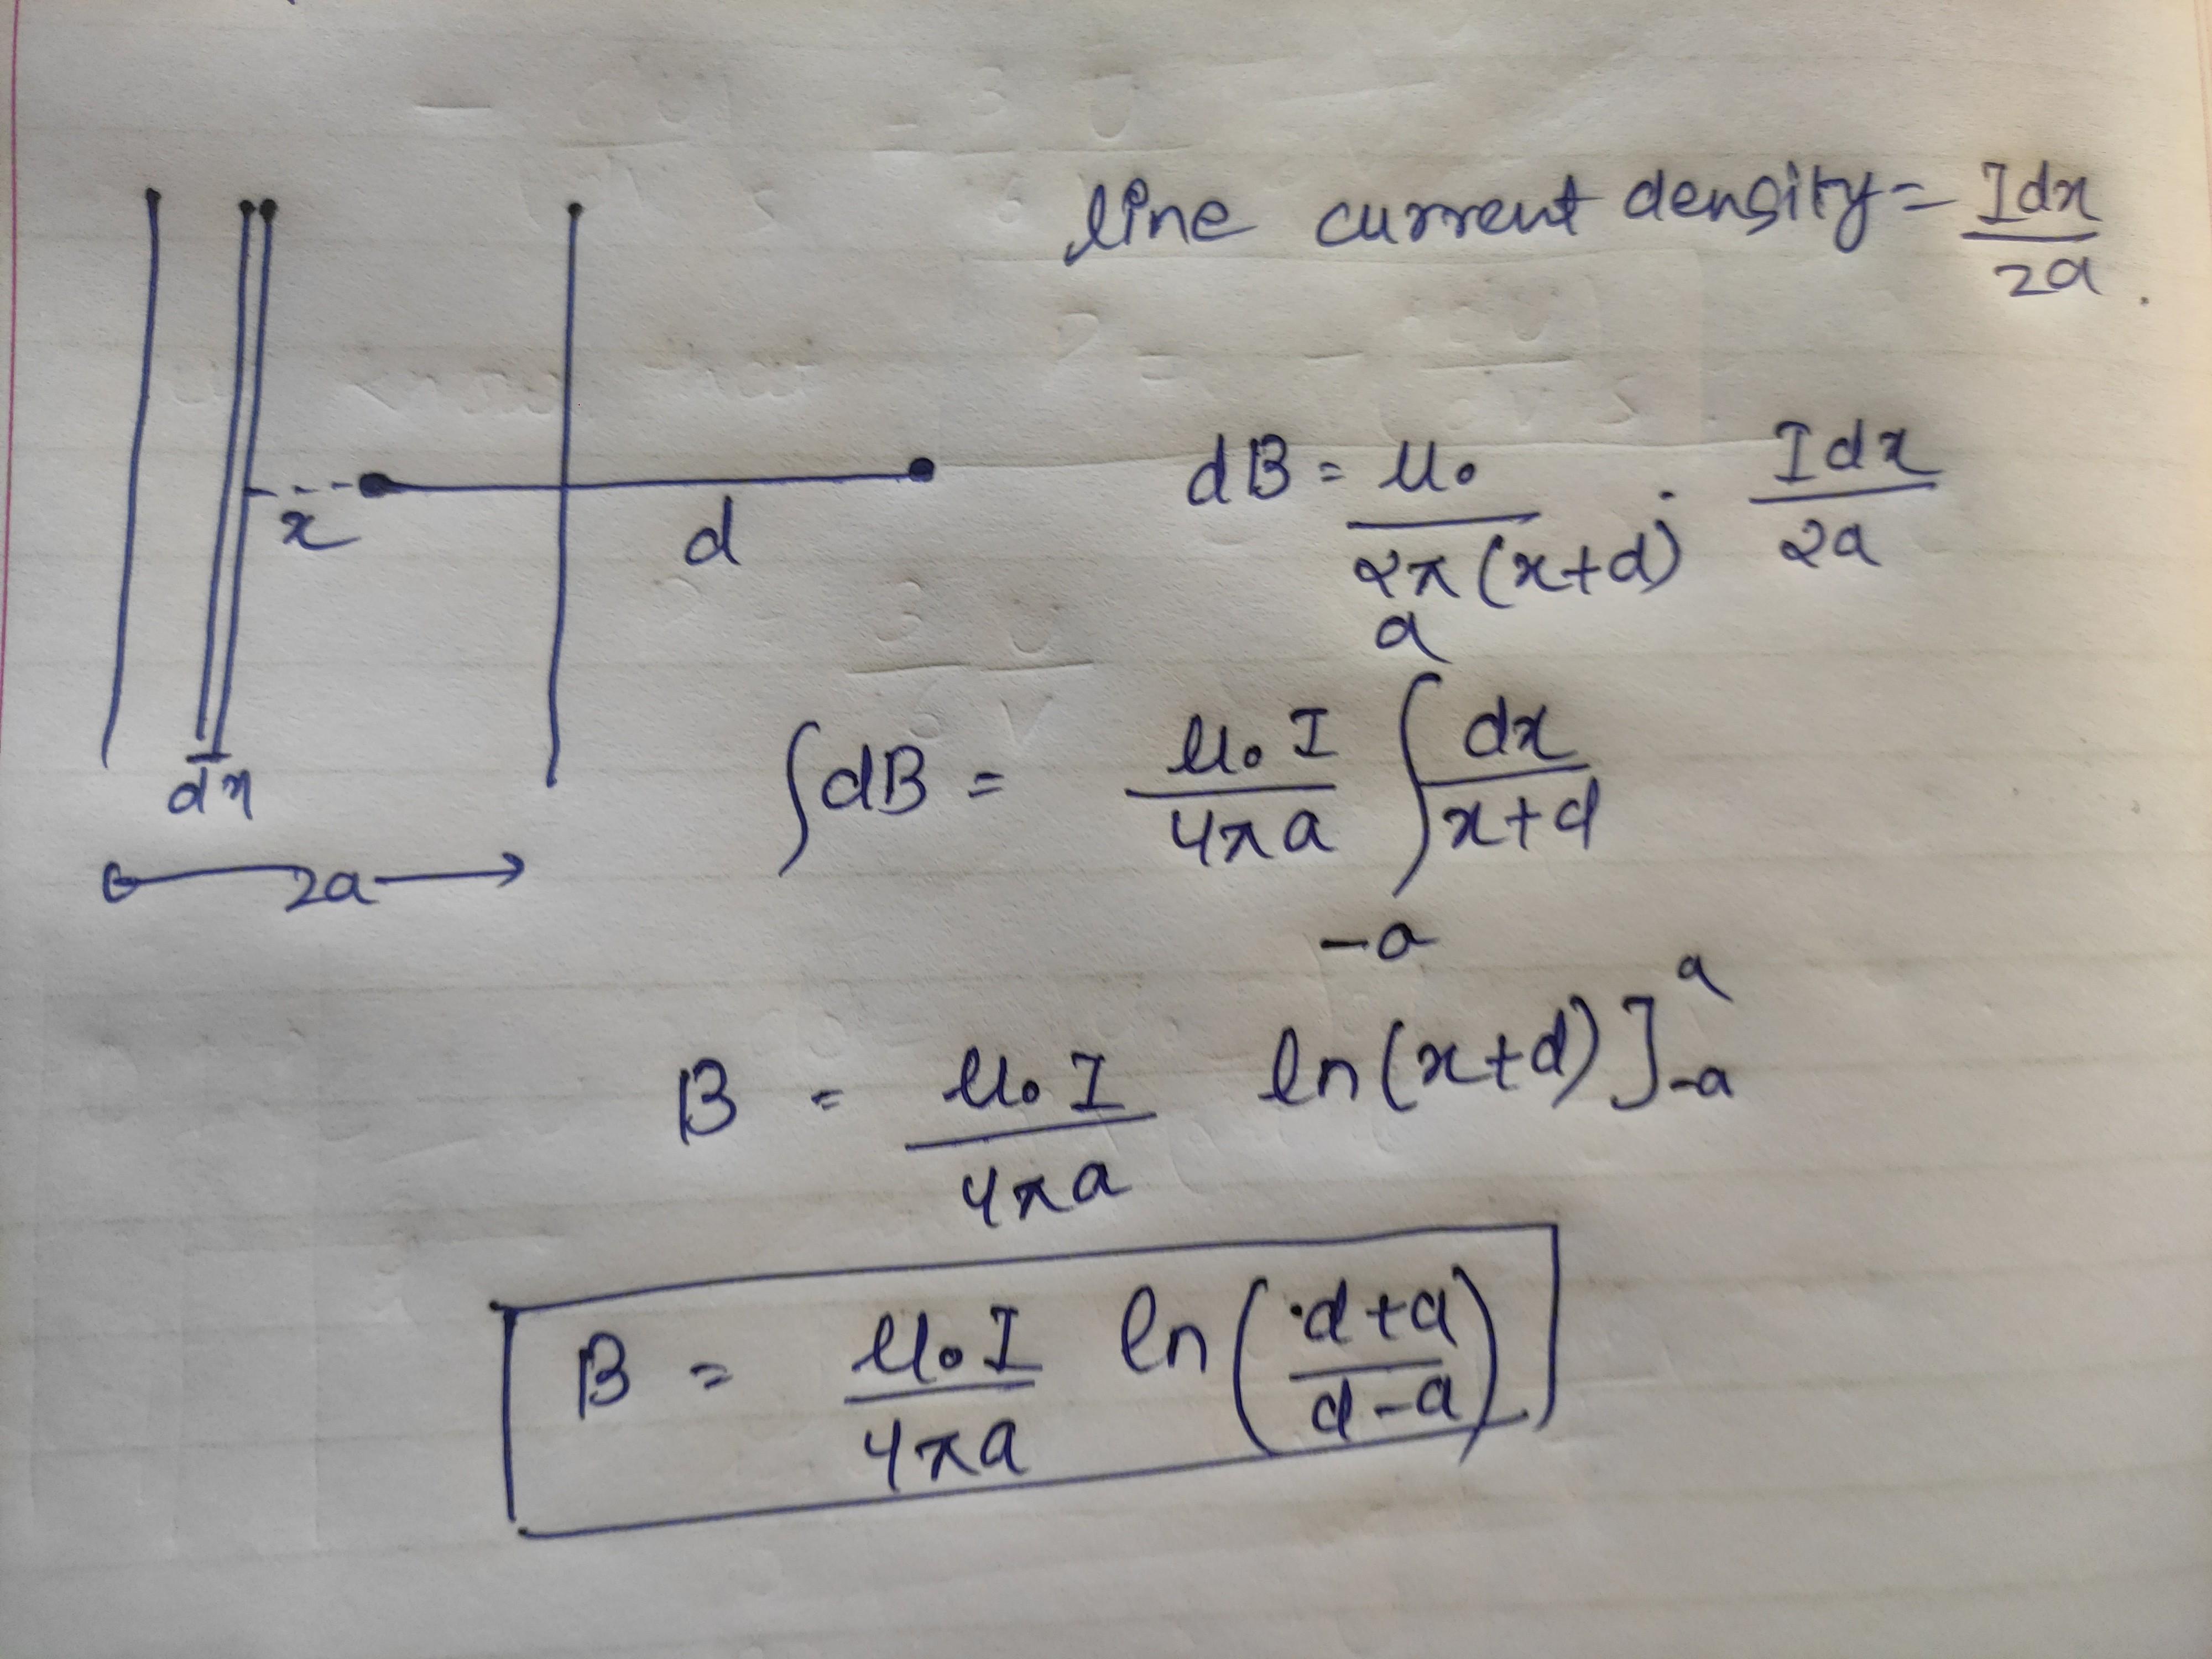 line current density = Idx/2a.
x
d
dB = μ₀/2π(x+d) · Idx/2a
dx
2a
∫dB = μ₀I/4πa ∫₋ₐᵃ dx/x+d
B = μ₀I/4πa ln(x+d)]₋ₐᵃ
B = μ₀I/4πa ln(d+a/d-a)